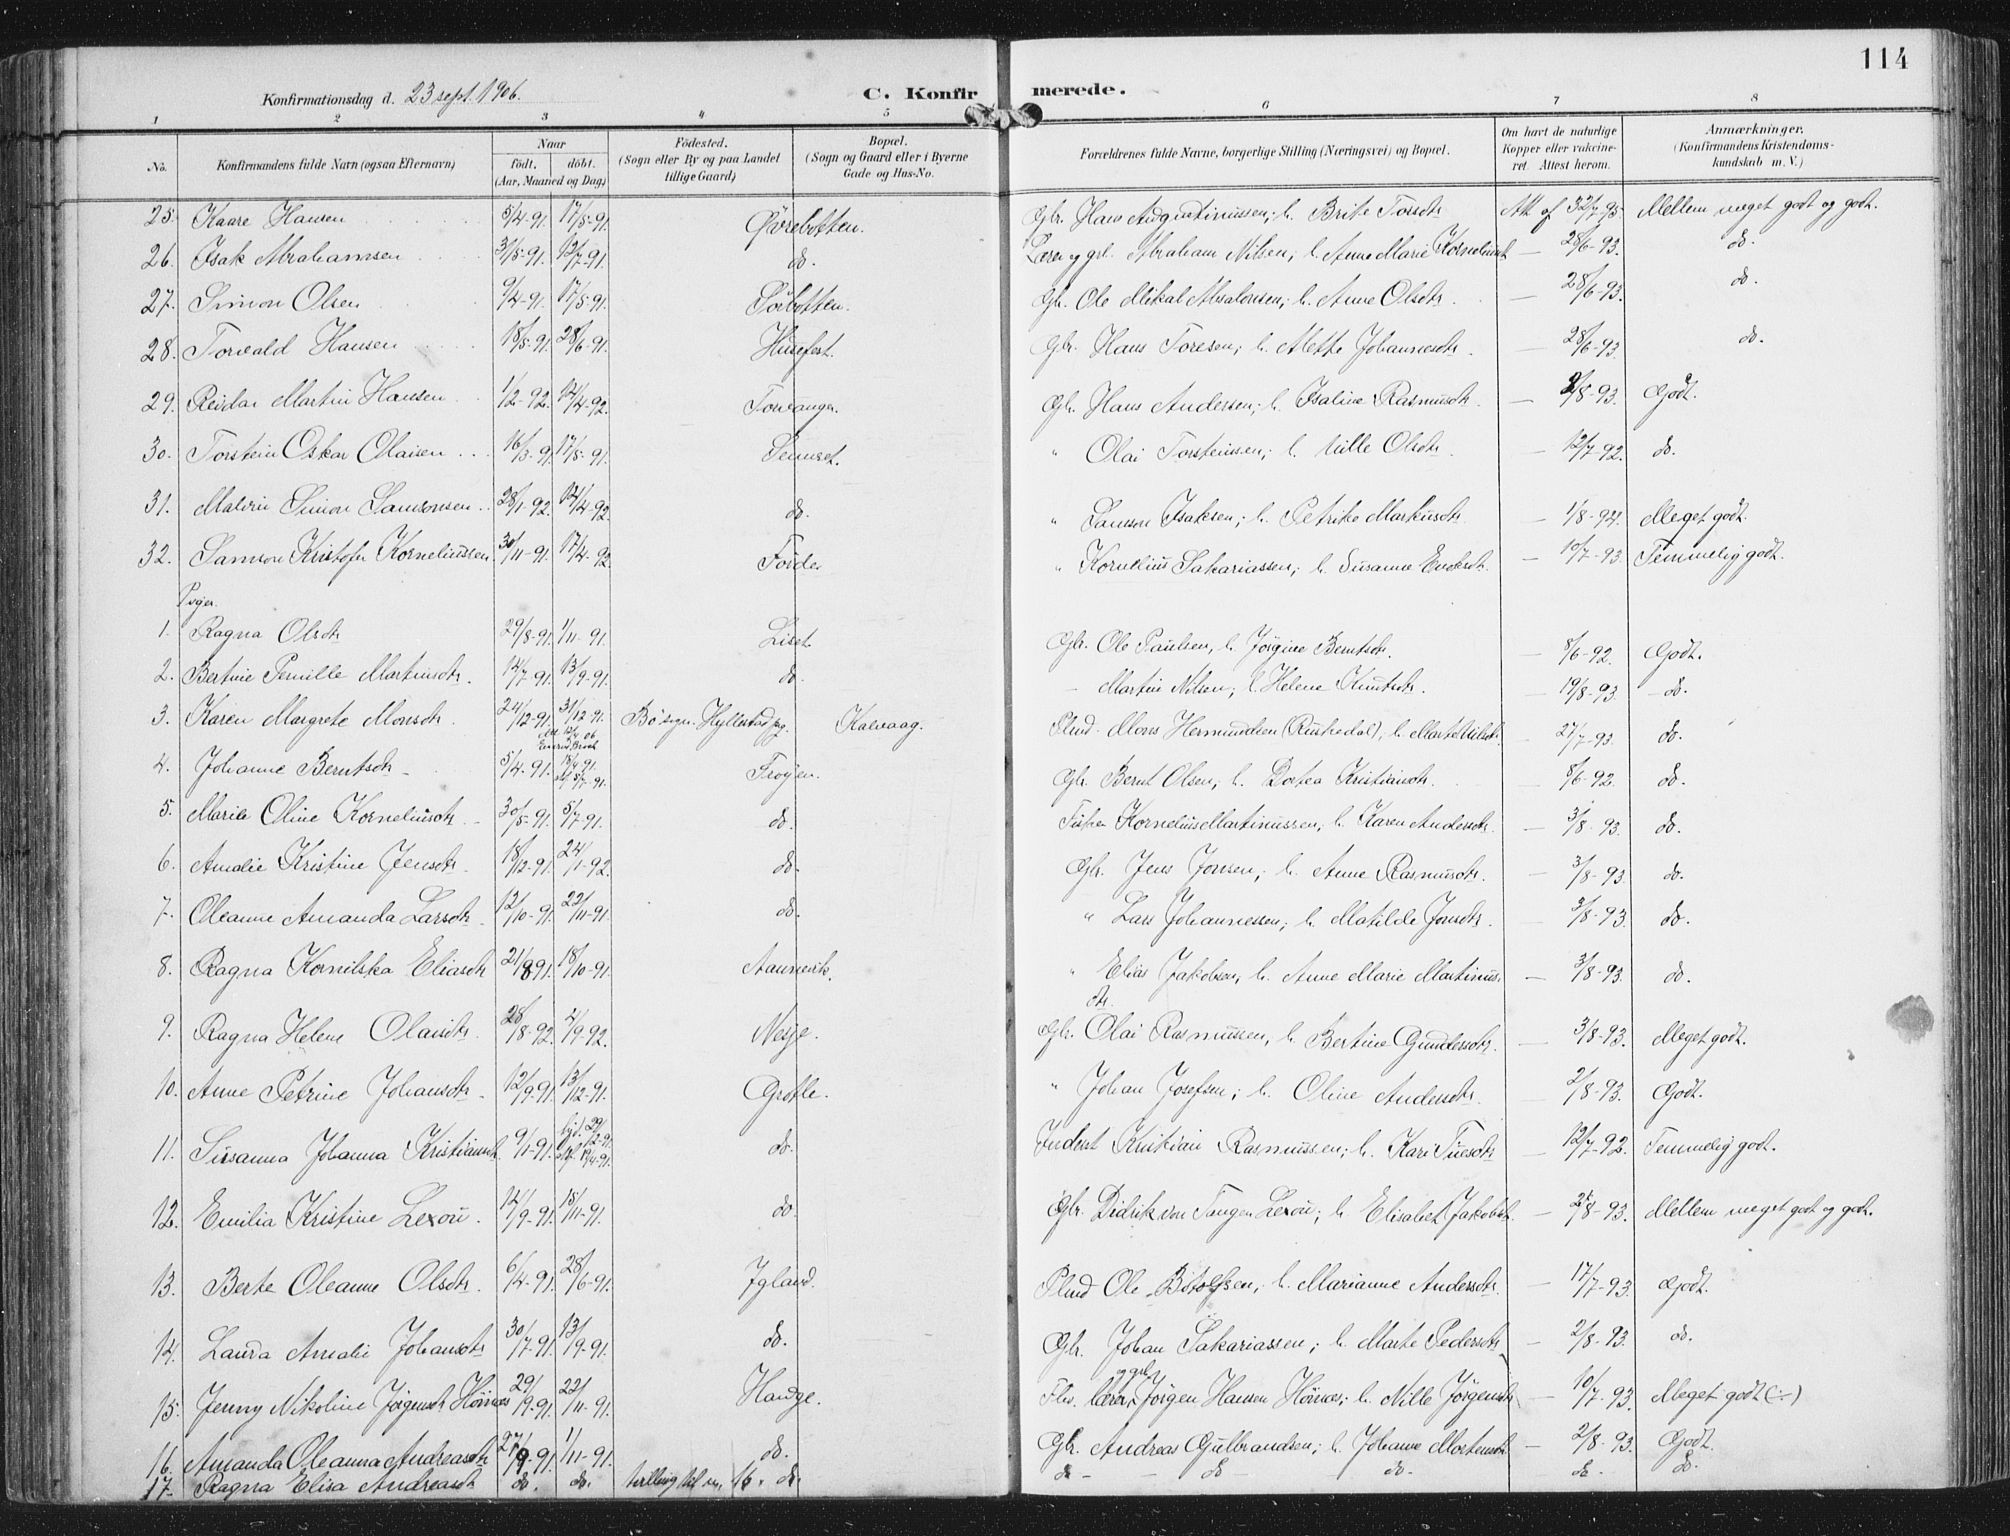 114
Konfirmationsdag d. 23 sept. 1906. C. Konfirmerede.
1 2 3 4 5 6 7 8
No. Konfirmandens fulde Navn (ogsaa Efternavn) Naar født. døbt. (Aar, Maaned og Dag) Fødested. (Sogn eller By og paa Landet tillige Gaard) Bopæl. (Sogn og Gaard eller i Byerne Gade og Hus-No. Forældrenes fulde Navne, borgerlige Stilling (Næringsvei) og Bopæl. Om havt de naturlige Kopper eller vakcineret. Attest herom. Anmærkninger. (Konfirmandens Kristendomskundskab m. V.)
25. Kaare Hansen 5/4-91. 17/5-91. Øvrebotten. Gbr. Hans Augustinussen; h. Brite Torsdtr. Mellem meget godt og godt.
26. Isak Abrahamsen 31/5-91. 12/7-91. do. Lærer og gbr. Abraham Nilsen; h. Anne Marie Kornelius — 28/6-93. do.
27. Simon Olsen 9/4-91. 17/5-91. Sørbotten. Gbr. Ole Mikal Absalonsen; h. Anne Olsdtr. — 28/6-93. do.
28. Torvald Hansen 18/5-91. 28/6-91. Husefest. Gbr. Hans Toresen; h. Mette Johannesdtr. — 28/6-93. do.
29. Reidar Martin Hansen 1/2-92. 12/4-92. Torvanger. Gbr. Hans Andersen; h. Isaline Rasmusdtr. — 2/8-93. Godt.
30. Torstein Oskar Olaisen 16/3-91. 17/5-91. Senneset. " Olai Torsteinsen; h. Nille Olsdtr. — 12/7-92. do.
31. Malvin Simon Samsonsen 28/1-92. 12/4-92. do. " Samson Isaksen; h. Petrike Markusdtr. — 1/8-94. Meget godt.
32. Samson Kristofer Korneliussen 30/11-91. 17/4-92. Førde. " Kornelius Sakariassen; h. Susanne Endresdtr. — 10/7-93. Temmelig godt.
Piger.
1. Ragna Olsdtr. 29/8-91. 1/11-91. Liset. Gbr. Ole Paulsen, h. Jørgine Berntsdtr. — 8/6-92. Godt.
2. Bertine Pernille Martinsdtr. 14/7-91. 13/9-91. do. - Martin Nilsen; h. Helene Knutsdtr. — 19/8-93. do.
3. Karen Margrete Monsdtr. 24/12-91. 31/12-91. Bø sogn. Hyllestad pg. Kalvaag. Plmd. Mons Hermundsen (Riskedal), h. Marte Nilsdtr. 27/7-93. do.
4. Johanne Berntsdtr. 5/4-91. 12/4-91. Frøyen. Gbr. Bernt Olsen; h. Dortea Kristiansdtr. — 8/6-92. do.
5. Marie Oline Korneliusdtr. 30/5-91. 5/7-91. do. Fisker Kornelius Martinussen; h. Karen Andersdtr. — 3/8-93. do.
6. Amalie Kristine Jensdtr. 18/12-91. 24/1-92. do. Gbr. Jens Jonsen; h. Anne Rasmusdtr. — 3/8-93. do.
7. Oleanne Amanda Larsdtr. 12/10-91. 22/11-91. do. " Lars Johannessen; h. Matilde Jonsdtr. — 3/8-93. do.
8. Ragna Kornilska Eliasdtr 21/8 91. 18/10-91. Aannevik. " Elias Jakobsen, h. Anne Marie Martinus- — 3/8-93. do.
dtr.
9. Ragna Helene Olaisdtr. 28/8-92. 2/9-92. Nesje. Gbr. Olai Rasmussen, h. Bertine Gundersdtr. — 3/8-93. Meget godt.
10. Anne Petrine Johansdtr. 12/9-91. 13/12-91. Grotle. " Johan Josefsen; h. Oline Andersdtr. — 2/8-93. Godt.
11. Susanna Johanna Kristiansdtr. 9/1-91. do. Inderst Kristian Rasmussen; h. Kari Tuesdtr. — 12/7-92. Temmelig godt.
12. Emilia Kristine Lexou. 14/9-91. 15/11-91. do. Gbr. Didrik von Tangen Lexou; h. Elisabet Jakobsdtr. — 2/8-93. Mellem meget godt og godt.
13. Berte Oleanne Olsdtr. 6/4-91. 28/6-91. Igland. Plmd Ole Botolfsen; h. Marianne Andersdtr. — 17/7-93. Godt.
14. Laura Amalie Johansdtr. 30/7-91. 13/9-91. do. Gbr. Johan Sakariassen; h. Marte Pedersdtr. — 2/8-93. do.
15. Jenny Nikoline Jørgensdtr. Hornes 29/9-91. 22/11-91. Hauge. lærer og gbr. Jørgen Hansen Hornes; h. Nille Jørgensdtr. — 10/7-93. Meget godt (-)
16. Amanda Oleanna Andreasdtr. 27/9-91. 1/11-91. do. Gbr. Andreas Gulbrandsen; h. Johanne Mortensdtr. — 2/8-93. Godt.
17. Ragna Elisa Andreasdtr. do. do. tvilling til no. 16. do. do - do - do. do. do.